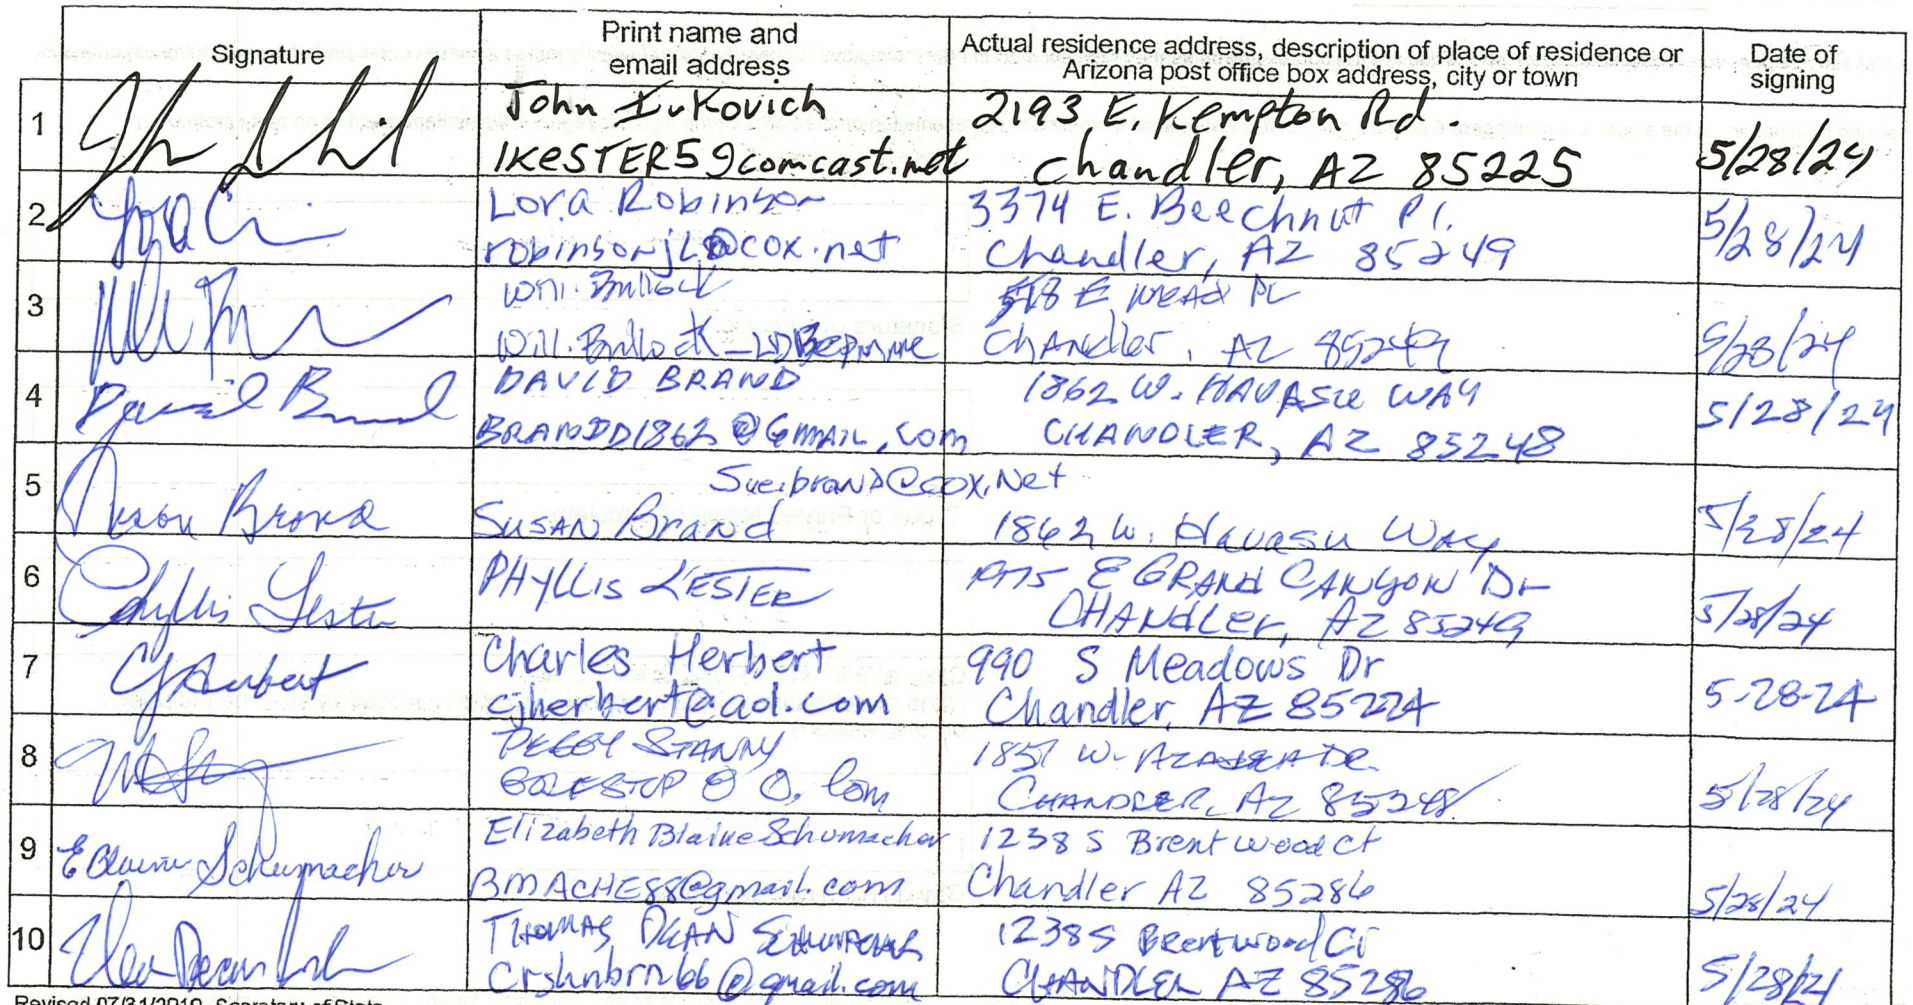 Signature
Print name and
email address
Actual residence address, description of place of residence or
Arizona post office box address, city or town
Date of
signing
1
John Ivkovich
IKESTER59comcast.net
2193 E. Kempton Rd.
Chandler, AZ 85225
5/28/24
2
Lora Robinson
robinsonjL@cox.net
3374 E. Beechnut Pl.
Chandler, AZ 85249
5/28/24
3
Will Bullock
Will.Bullock
E Mead PL
Chandler, AZ 85249
5/28/24
4
David Brand
DAVID BRAND
BRANDD1862@Gmail.com
1862 W. HAVASU WAY
CHANDLER, AZ 85248
5/28/24
5
Susan Brand
Sue.brand@cox.Net
SUSAN Brand
1862 W. Havasu Way
5/28/24
6
Phyllis Lester
PHYLLIS LESTER
1975 E GRAND CANYON Dr
CHANdLer, AZ 85249
5/28/24
7
CJHerbert
Charles Herbert
cjherbert@aol.com
990 S Meadows Dr
Chandler, AZ 85224
5-28-24
8
PEGGY STANNY
1857 W. AZALEA DR.
CHANDLER, AZ 85248
5/28/24
9
E Blaine Schumacher
Elizabeth Blaine Schumacher
BMACHE88@gmail.com
1238 S Brentwood Ct
Chandler AZ 85286
5/28/24
10
THOMAS DEAN SCHUMACHER
Crshnbrn66@gmail.com
1238 S Brentwood Ct
CHANDLER AZ 85286
5/28/24
Revised 07/31/2019 Secretary of State